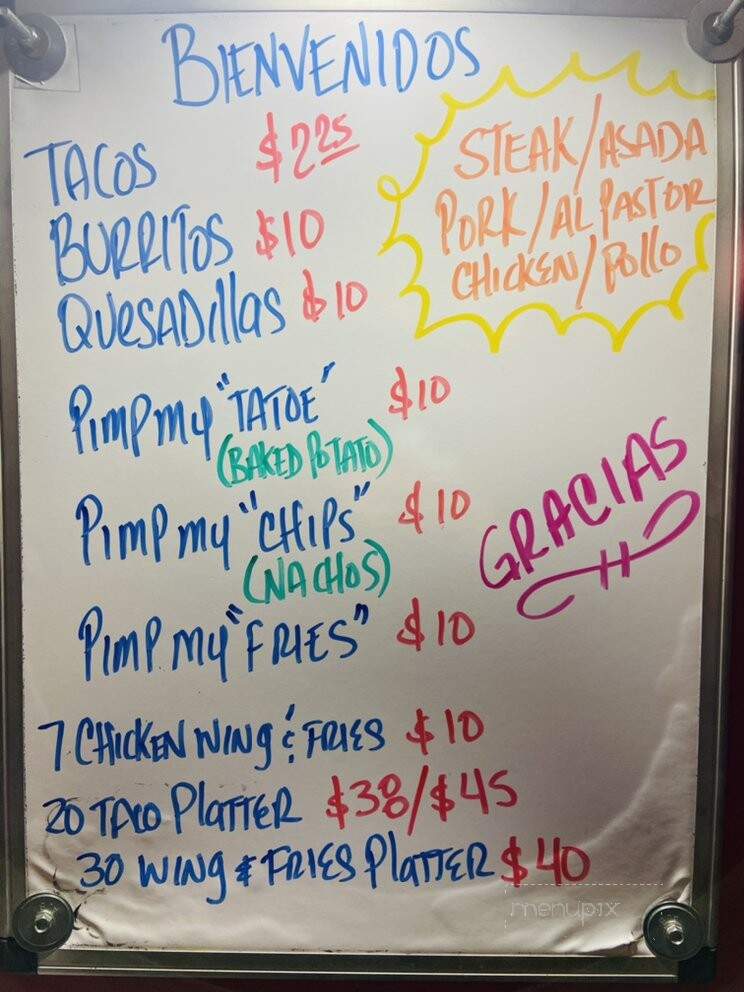 BIENVENIDOS
TACOS $2.25
BURRITOS $10
QUESADillAS $10
STEAK/ASADA
PORK/AL PASTOR
CHICKEN/Pollo
PIMP my "TATOE" $10
(BAKED POTATO)
PIMP my "CHIPS" $10
(NACHOS)
GRACIAS
PIMP my "FRIES" $10
7 CHICKEN WINg & FRIES $10
20 TACO PlATTER $38/$45
30 WINg & FRIES PlATTER $40
menupix